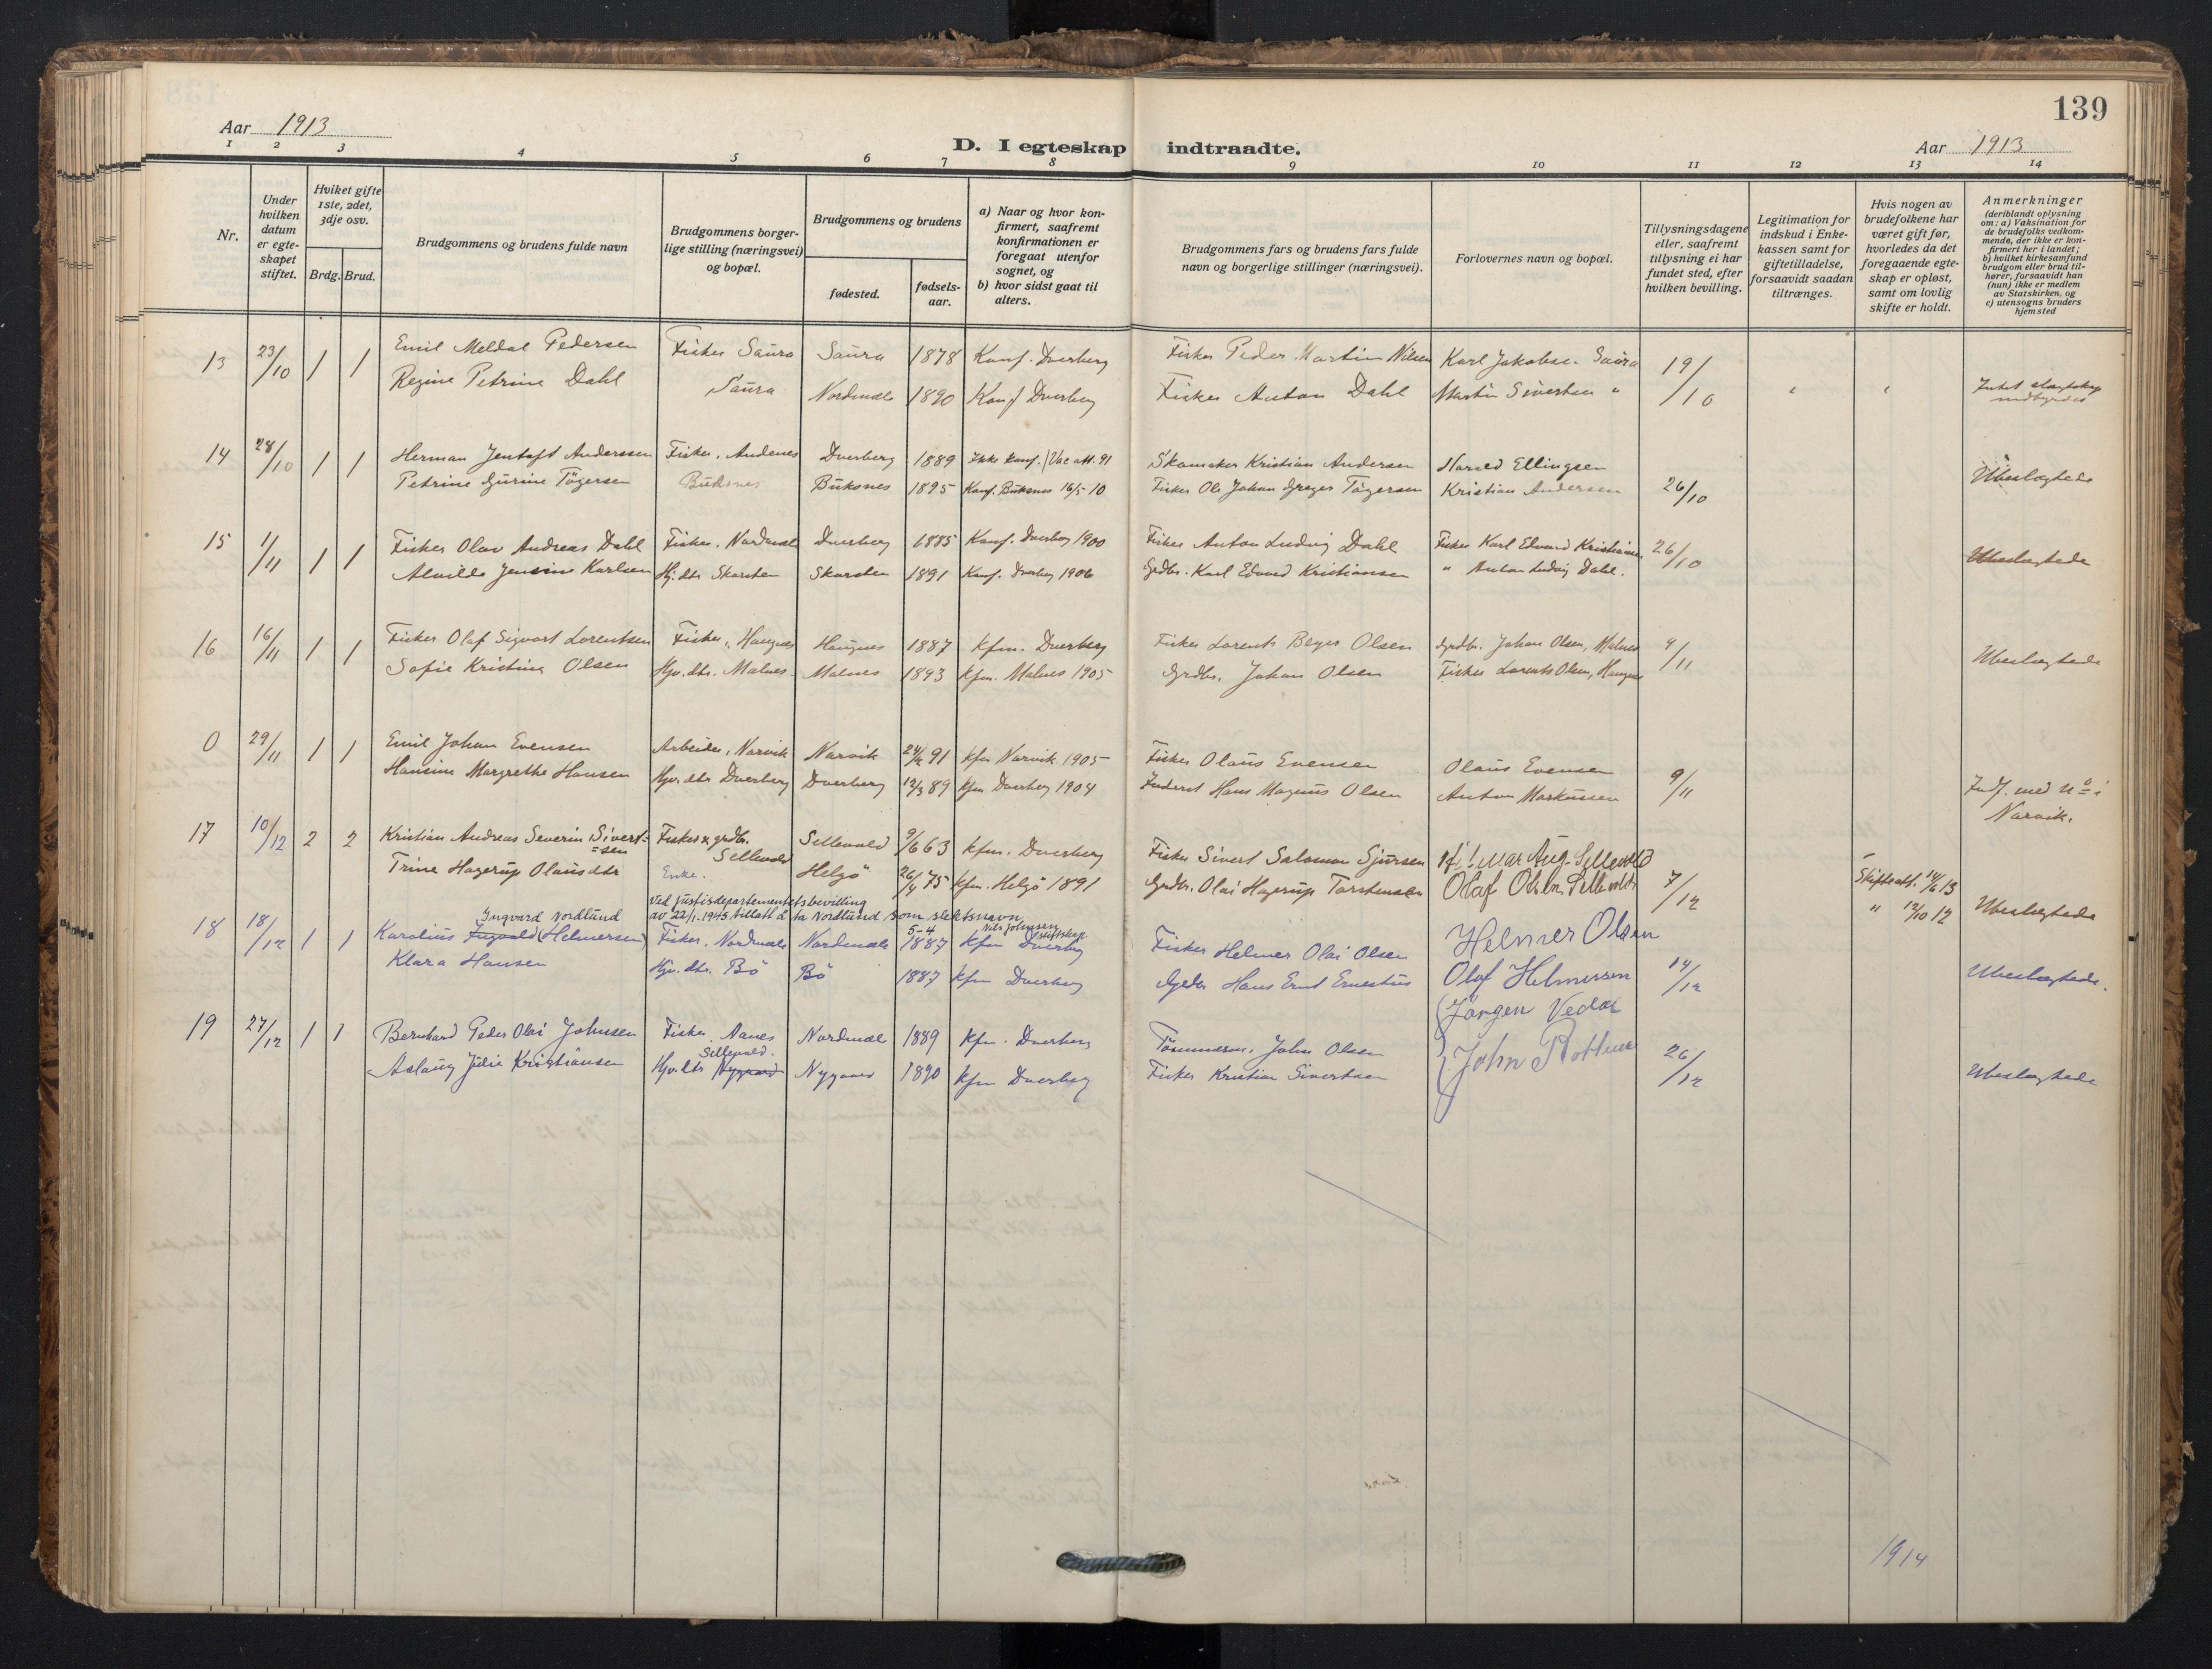 139
Aar 1913
D. I egteskap indtraadte.
Aar 1913
1 2 3 4 5 6 7 8 9 10 11 12 13 14
Nr.
Under hvilken datum er egteskapet stiftet.
Hviket gifte 1ste, 2det, 3dje osv.
Brdg. Brud.
Brudgommens og brudens fulde navn
Brudgommens borgerlige stilling (næringsvei) og bopæl.
Brudgommens og brudens
fødested.
fødselsaar.
a) Naar og hvor konfirmert, saafremt konfirmationen er foregaat utenfor sognet, og
b) hvor sidst gaat til alters.
Brudgommens fars og brudens fars fulde navn og borgerlige stillinger (næringsvei).
Forlovernes navn og bopæl.
Tillysningsdagene eller, saafremt tillysning ei har fundet sted, efter hvilken bevilling.
Legitimation for indskud i Enkekassen samt for giftetilladelse, forsaavidt saadan tiltrænges.
Hvis nogen av brudefolkene har været gift før, hvorledes da det foregaaende egteskap er opløst, samt om lovlig skifte er holdt.
Anmerkninger
(deriblandt oplysning om: a) Vaksination for de brudefolks vedkommende, der ikke er konfirmert her i landet; b) hvilket kirkesamfund brudgom eller brud tilhører, forsaavidt han (hun) ikke er medlem av Statskirken, og c) utensogns bruders hjemsted
13 23/10 1 1 Emil Meldal Pedersen Fisker Saura Saura 1878 Konf. Dverberg Fisker Peder Martin Nilsen Karl Jakobse. Saura 19/10 " "
Regine Petrine Dahl Saura Nordmæle 1890 Konf Dverberg Fisker Anton Dahl Martin Sivertsen " Intet slægtskap indbyrdes
14 28/10 1 1 Herman Jentoft Anderssen Fisker, Andenes Dverberg 1889 Ikke konf. / Vac att. 91 Skomaker Kristian Andersen Harald Ellingsen 26/10 Ubeslægtede
Petrine Gurine Tögersen Buksnes Buksnes 1895 Konf. Buksnes 16/5-10 Fisker Ole Johan Greger Tögersen Kristian Andersen
15 1/11 1 1 Fisker Olav Andreas Dahl Fisker, Nordmæle Dverberg 1885 Konf. Dverberg 1900 Fisker Anton Ludvig Dahl Fisker Karl Edvard Kristiansen 26/10 Ubeslægtede
Alvilde Jensine Karlsen Hj. dtr. Skarsten Skarsten 1891 Konf. Dverberg 1906 Grdbr. Karl Edvard Kristiansen " Anton Ludvig Dahl.
16 16/11 1 1 Fisker Olaf Sigvart Lorentsen Fisker, Haugnes Haugnes 1887 Kfm. Dverberg Fisker Lorents Beyer Olsen Grdbr. Johan Olsen, Malnes 9/11 Ubeslægtede
Sofie Kristine Olsen Hjv. dtr. Malnes. Malnes 1893 Kfm. Malnes 1905 Grdbr. Johan Olsen Fisker Lorents Olsen, Haugnes
0 29/11 1 1 Emil Johan Evensen Arbeider, Narvik Narvik 91 kfm Narvik 1905 Fisker Olaus Evensen Olaus Evensen 9/11
Hansine Margrethe Hansen Hjv. dtr Dverberg Dverberg 12/3 89 kfm Dverberg 1904 Inderst Hans Magnus Olsen Anton Markussen Indf. med No i Narvik.
17 10/12 2 2 Kristian Andreas Severin Sivertsen Fisker & grdbr. Sellevold Sellevold 9/6 63 kfm. Dverberg Fisker Sivert Salomon Sjursen Hilmar Aug. Sellevold 7/12 Skifteatt. 14/6 13
Trine Hagerup Olausdtr Enke. Helgö 26/4 75 kfm. Helgö 1891 Grdbr. Olai Hagerup Torstensen Olaf Olsen. Sellevold " 12/10 12 Ubeslægtede
Ved justisdepartementets bevilling
av 22/1.1945 tillatt å ta Nordlund som slektsnavn
Nils Johnsen
18 18/12 1 1 Karolius Ingvald (Helmersen) Ingvard Nordlund Fisker, Nordmæle Nordmæle 5-4 1887 kfm Dverberg Fisker Helmer Olai Olsen Helmer Olsen 14/12 Ubeslægtede.
Klara Hansen Hjv. dtr. Bö Bö 1887 kfm Dverberg Grdbr Hans Ernt Ernestus Olaf Helmersen
19 27/12 1 1 Bernhard Peder Olai Johnsen Fisker, Aanes Nordmæle 1889 kfm. Dverberg Tömmerm. John Olsen Jörgen Vedal 26/12
Aslaug Julie Kristiansen Hjv. dtr Nygaard Sellevold. Nygaard 1890 kfm Dverberg Fisker Kristian Sivertsen John Ubeslægtede
1914